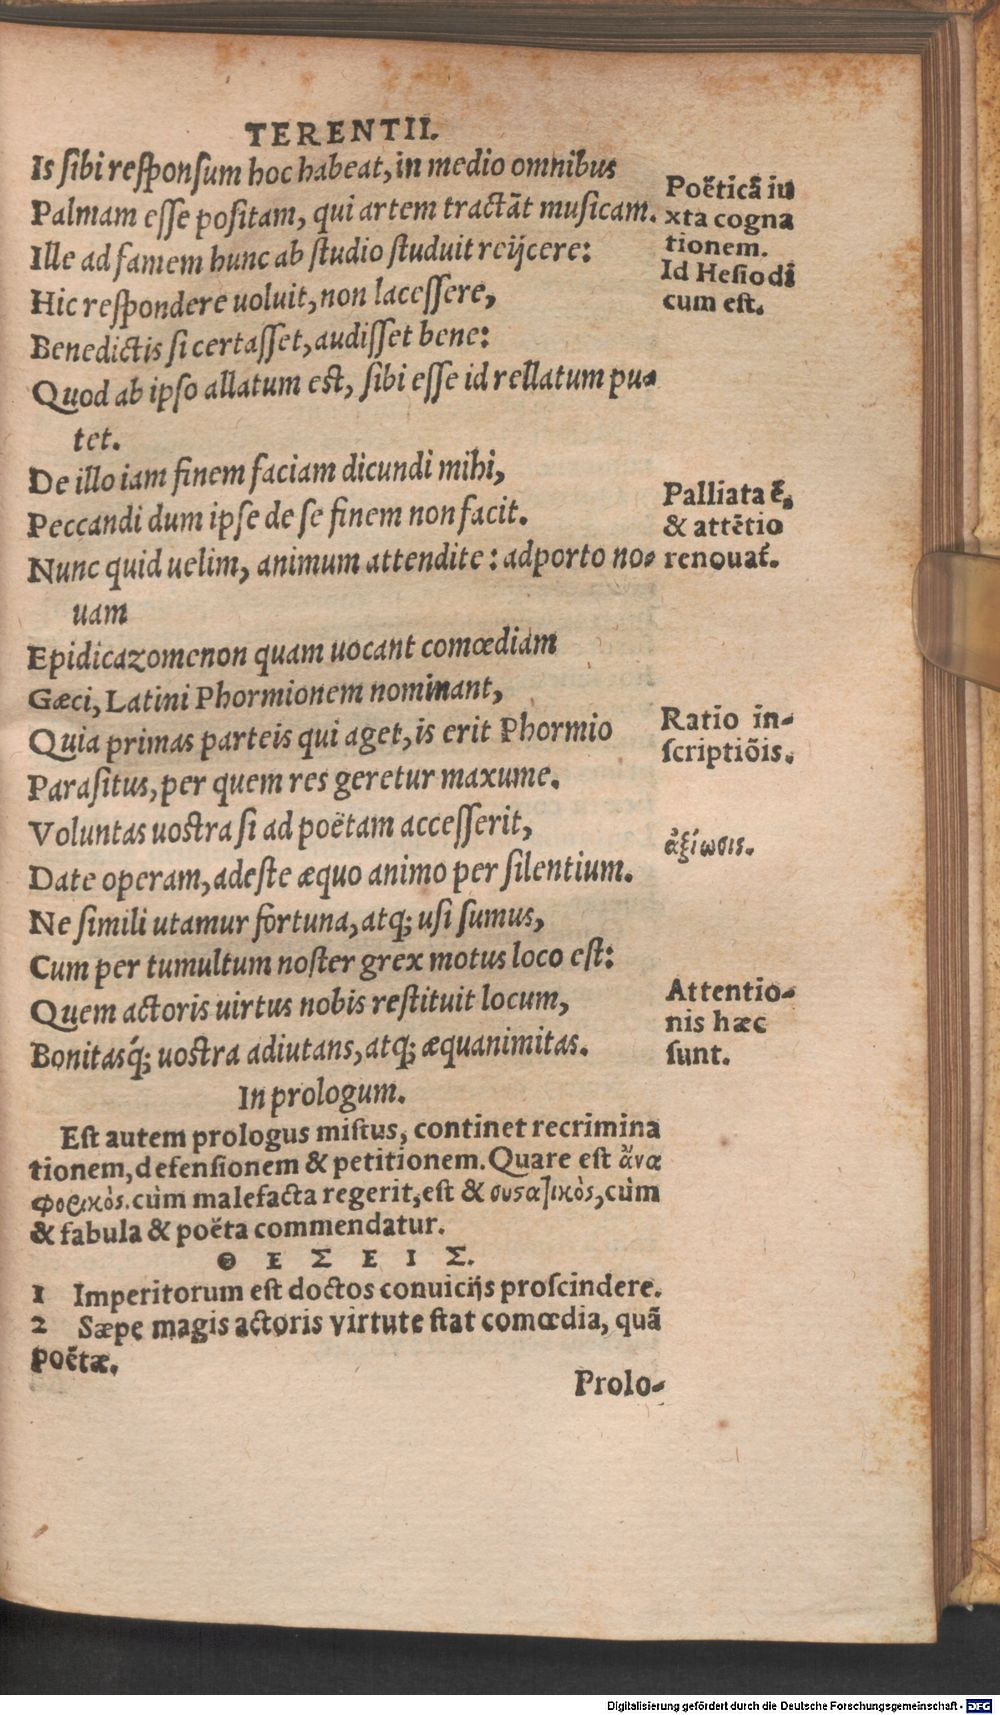 TERENTII.
Is sibi responsum hoc habeat, in medio omnibus
Palmam esse positam, qui artem tractāt musicam.
Ille ad famem hunc ab studio studuit reijcere:
Hic respondere uoluit, non lacessere,
Benedictis si certasset, audisset bene:
Quod ab ipso allatum est, sibi esse id rellatum pu-
tet.
De illo iam finem faciam dicundi mihi,
Peccandi dum ipse de se finem non facit.
Nunc quid uelim, animum attendite: adporto no-
uam
Epidicazomenon quam uocant comœdiam
Gæci, Latini Phormionem nominant,
Quia primas parteis qui aget, is erit Phormio
Parasitus, per quem res geretur maxume.
Voluntas uostra si ad poëtam accesserit,
Date operam, adeste æquo animo per silentium.
Ne simili utamur fortuna, atq; usi sumus,
Cum per tumultum noster grex motus loco est:
Quem actoris uirtus nobis restituit locum,
Bonitasq́; uostra adiutans, atq; æquanimitas.
Poëticā iu
xta cogna
tionem.
Id Hesiodi
cum est.
Palliata ē,
& attētio
renouat̃.
Ratio in-
scriptiõis.
ἀξίωσις.
Attentio-
nis hæc
sunt.
In prologum.
Est autem prologus mistus, continet recrimina
tionem, defensionem & petitionem. Quare est ἄνα
φορικὸς. cùm malefacta regerit, est & συστατικὸς, cùm
& fabula & poëta commendatur.
Θ Ε Σ Ε Ι Σ.
1 Imperitorum est doctos conuicijs proscindere.
2 Sæpe magis actoris virtute stat comœdia, quā
poëtæ.
Prolo-
Digitalisierung gefördert durch die Deutsche Forschungsgemeinschaft - DFG